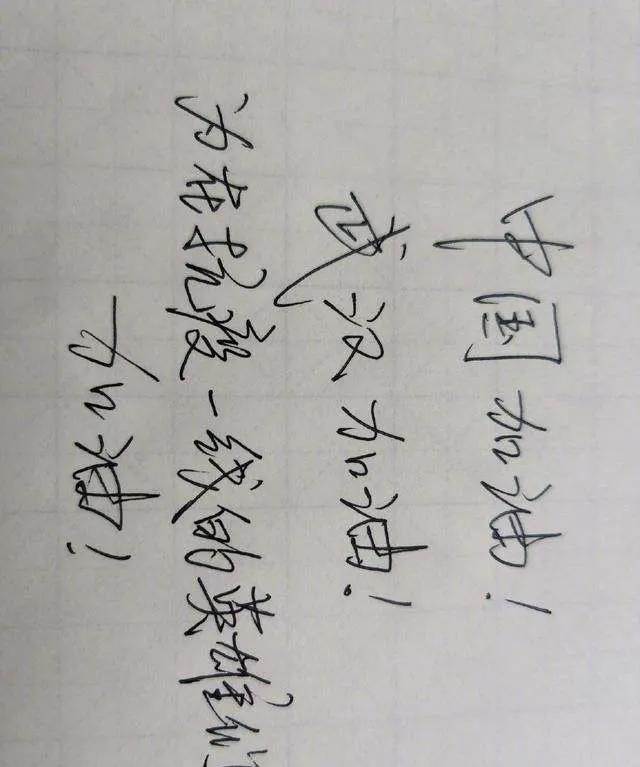 中国加油!
武汉加油!
为在抗疫一线的英雄们
加油!